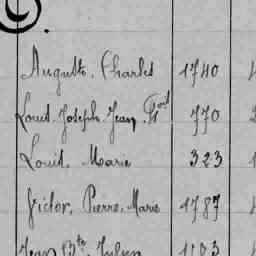 Auguste, Charles 1740
Louis, Joseph, Jean, 770
Louis, Marie 323
Victor, Pierre, Marie 1787
Jean Bte, Julien 1183